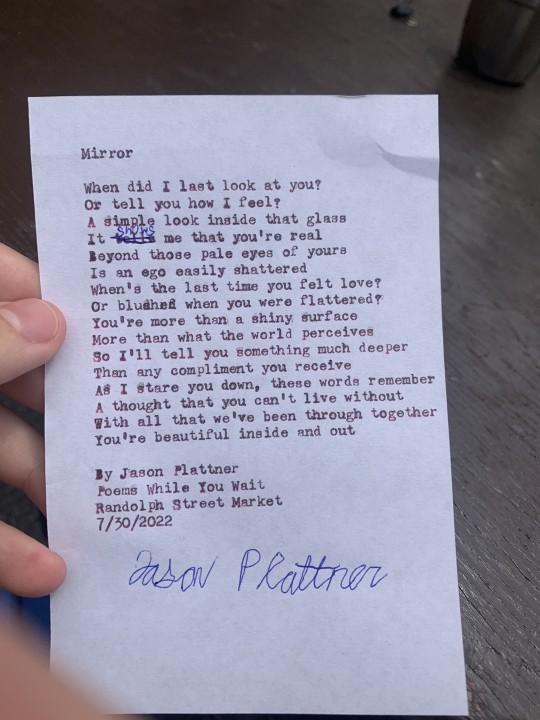 Mirror
When did I last look at you?
Or tell you how I feel?
A simple look inside that glass
shows
It tells me that you're real
Beyond those pale eyes of yours
Is an ego easily shattered
When's the last time you felt love?
Or blushed when you were flattered?
You're more than a shiny surface
More than what the world perceives
So I'll tell you something much deeper
Than any compliment you receive
As I stare you down, these words remember
A thought that you can't live without
With all that we've been through together
You're beautiful inside and out
By Jason Plattner
Poems While You Wait
Randolph Street Market
7/30/2022
Jason Plattner